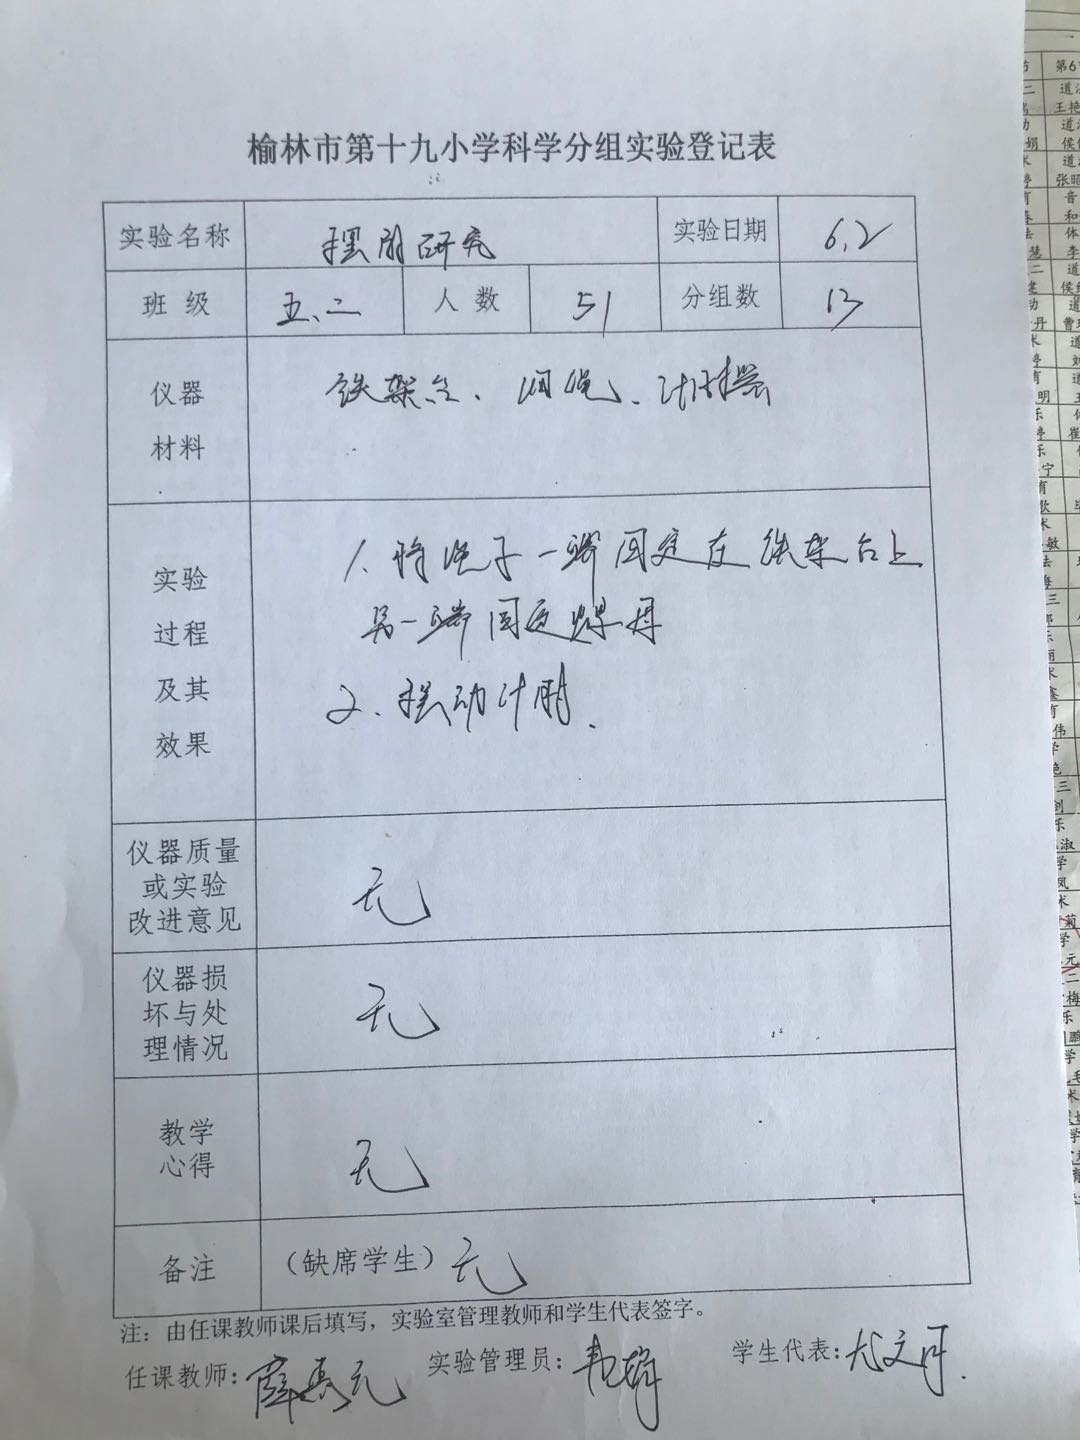 榆林市第十九小学科学分组实验登记表
实验名称 摆的研究 实验日期 6.2
班 级 五、二 人 数 51 分组数 13
仪器
材料
铁架台、细绳、计时器
实验
过程
及其
效果
1.将绳子一端固定在铁架台上
另一端固定螺母
2、摆动计时.
仪器质量
或实验
改进意见
无
仪器损
坏与处
理情况
无
教学
心得
无
备注 (缺席学生) 无
注：由任课教师课后填写，实验室管理教师和学生代表签字。
任课教师: 实验管理员: 学生代表: 尤文丹.